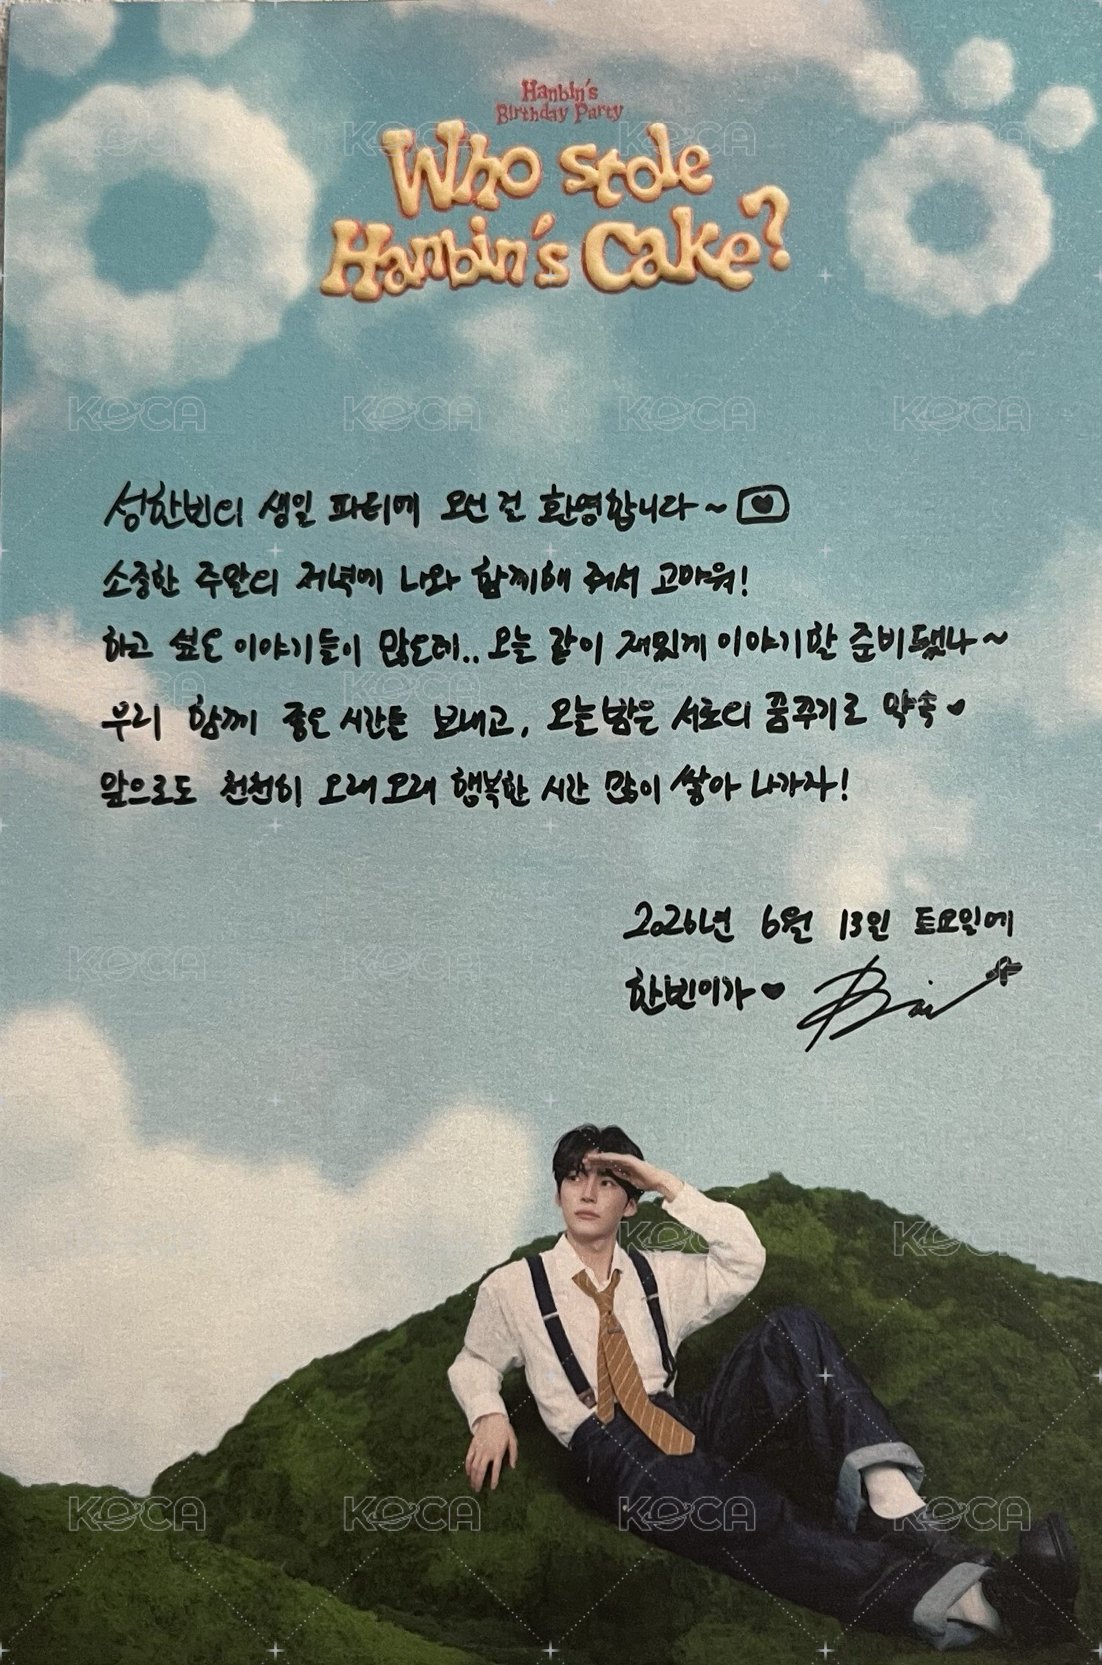 Hanbin's
Birthday Party
Who stole
Hanbin's Cake?
성한빈의 생일 파티에 오신 걸 환영합니다~
소중한 주말의 저녁에 나와 함께해 줘서 고마워!
하고 싶은 이야기들이 많은데.. 오늘 같이 재밌게 이야기할 준비됐나~
우리 함께 좋은 시간들 보내고, 오늘밤은 서로의 꿈꾸기로 약속♥
앞으로도 천천히 오래오래 행복한 시간 많이 쌓아 나가자!
2026년 6월 13일 토요일에
한빈이가♥
KOCA